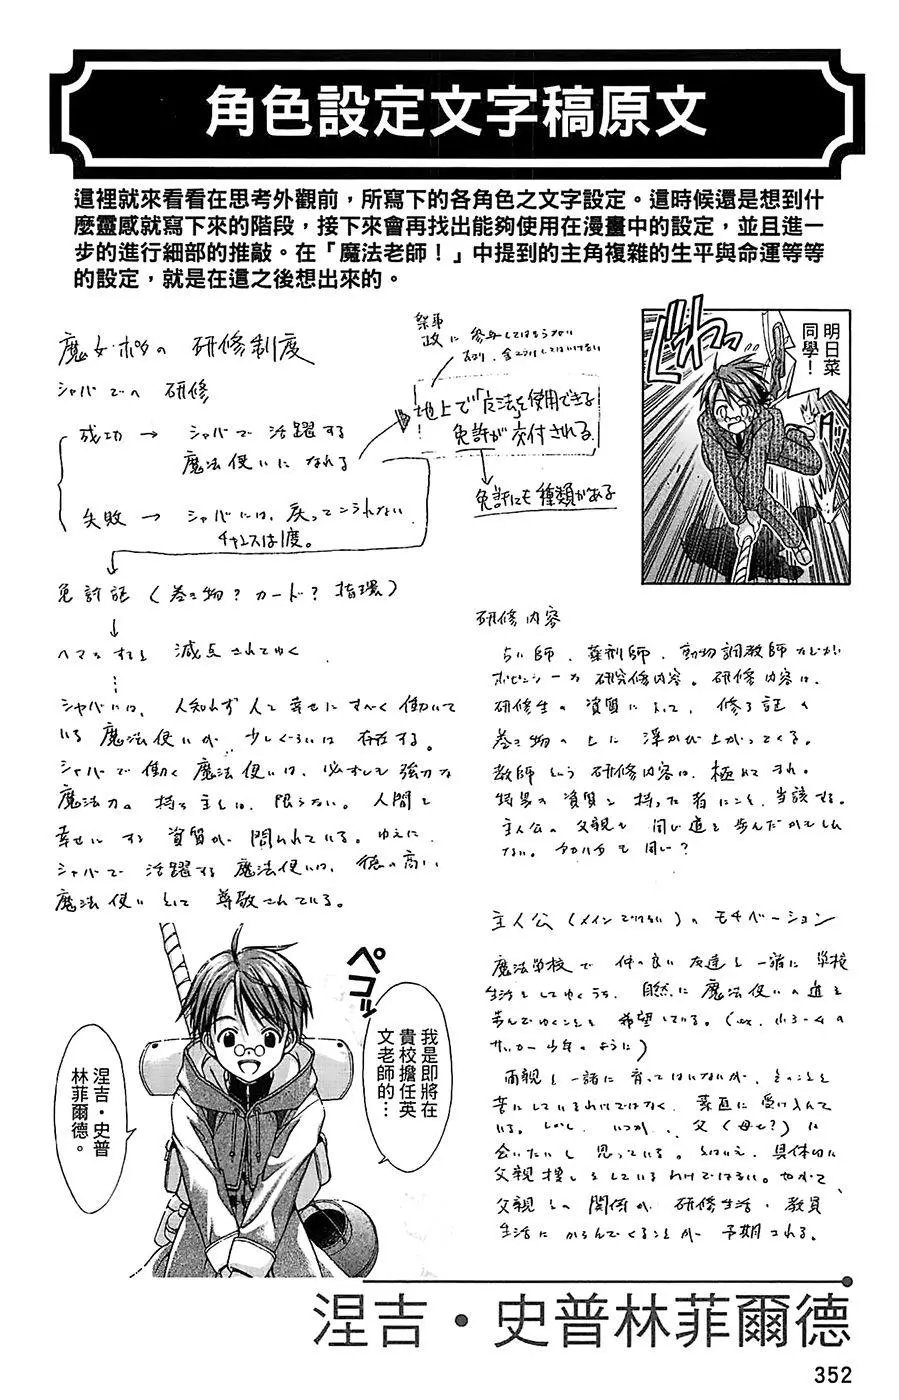 角色設定文字稿原文
這裡就來看看在思考外觀前，所寫下的各角色之文字設定。這時候還是想到什
麼靈感就寫下來的階段，接下來會再找出能夠使用在漫畫中的設定，並且進一
步的進行細部的推敲。在「魔法老師！」中提到的主角複雜的生平與命運等等
的設定，就是在這之後想出來的。
研修制度
シャバでの 研修
成功 → シャバで 活躍する
魔法使いに なれる
失敗 → シャバには、戻ってこられない
チャンスは1度。
祭事
政に
地上で「魔法を使用できる
免許が 交付される。
免許にも 種類がある
免許証（巻き物？カード？指環）
ヘマをすると 減点されてゆく
シャバには、人知れず 人を幸せにすべく 働いて
いる 魔法使いが 少しぐらいは 存在する。
シャバで 働く 魔法使いは、必ずしも 強力な
魔法力の 持ち主とは 限らない。人間を
幸せに する 資質が 問われている。ゆえに
シャバで 活躍する 魔法使いは、徳の高い
魔法使いとして 尊敬されている。
明日菜
同學！
研修内容
占い師、薬剤師、動物調教師などが
研修内容。研修内容は、
研修生の 資質によって、修了証の
巻き物の 上に 浮かび上がってくる。
教師という 研修内容は、極めてまれ。
特異な 資質を 持った者にこそ、当該する。
主人公の 父親も 同じ道を 歩んだかもしれ
ない。 も 同い？
主人公（メインではない）の モチベーション
魔法学校で 仲の良い 友達と 一緒に 学校
生活をしてゆくうち、自然に 魔法使いの 道を
歩んでゆくことを 希望している。（ex. 
サッカー少年のように）
両親と 一緒に 育ってはいないが、そのことを
苦にしているわけではなく、素直に 受け入れて
いる。しかし、いつか、父（母も？）に
会いたいと 思っている。とはいえ、具体的に
父親探しをしているわけではない。やがて、
父親との 関係が、研修生活・教員
生活に からんでくることが 予期される。
ペコッ
我是即將在
貴校擔任英
文老師的…
涅吉・史普
林菲爾德。
涅吉・史普林菲爾德
352